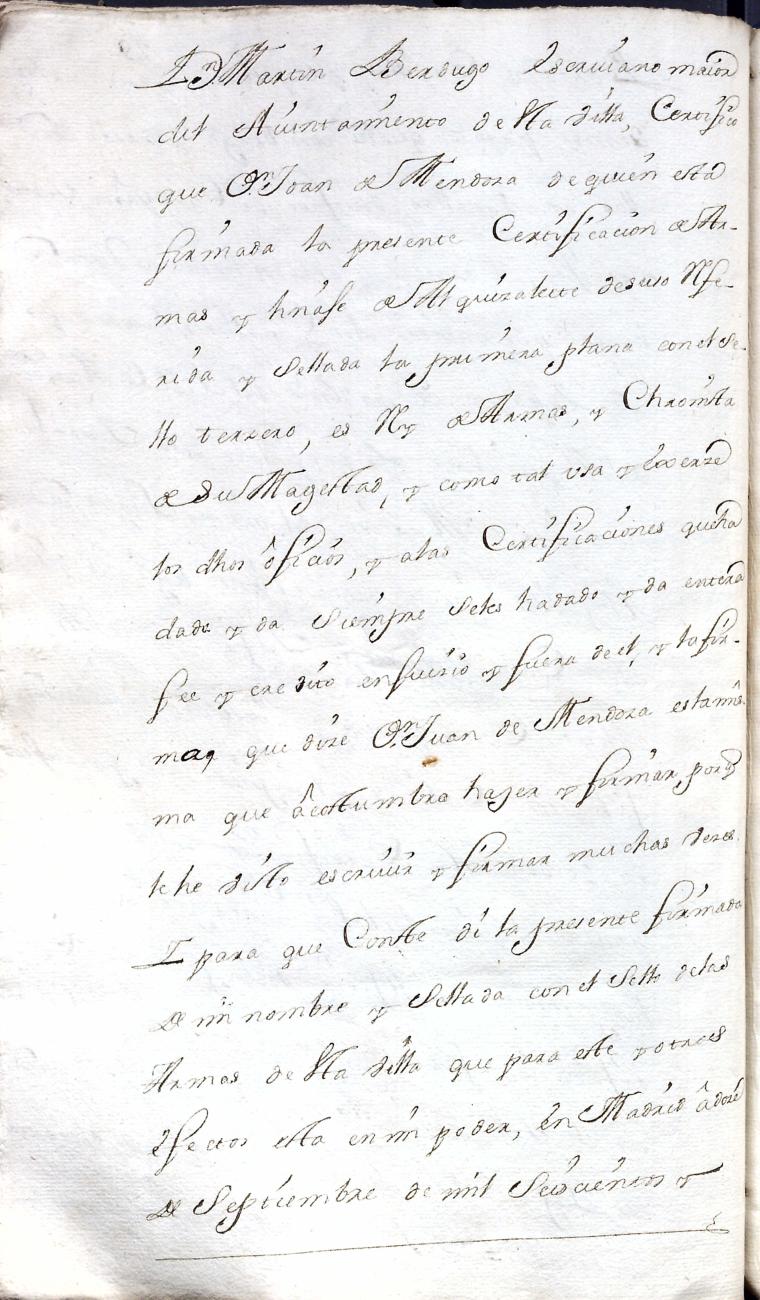 Yo Dn Martin Berdugo Escriuano maior
del Aiuntamiento de Sta Villa, Certifico
que Dn Joan de Mendoza de quien esta
firmada la presente Certificacion de Ar-
mas y linase de Alguizalette desuso Rfe-
rida y Sellada la primera plana con el Se-
llo terzero, es Ry de Armas, y Chronista
de Su Magestad, y como tal usa y Exerze
los dhos ôficios, y alas Certificaciones queha
dado y da siempre seles hadado y da entera
fee y credito enjuicio y fuera de el, y lafir-
ma, que dize Dn Juan de Mendoza es lamis-
ma que âcostumbra hazer y firmar, porq
le he visto escriuir y firmar muchas vezes.
I para que Conste di la presente firmada
de mi nombre y Sellada con el Sello delas
Armas de Sta Villa que para este y otros
Efectos esta en mi poder, en Madrid â doze
de Septiembre de mil Seiscientos y